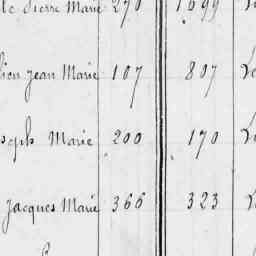 Pierre Marie 270 1699
Jean Marie 107 807
Joseph Marie 200 170
Jacques Marie 366 323